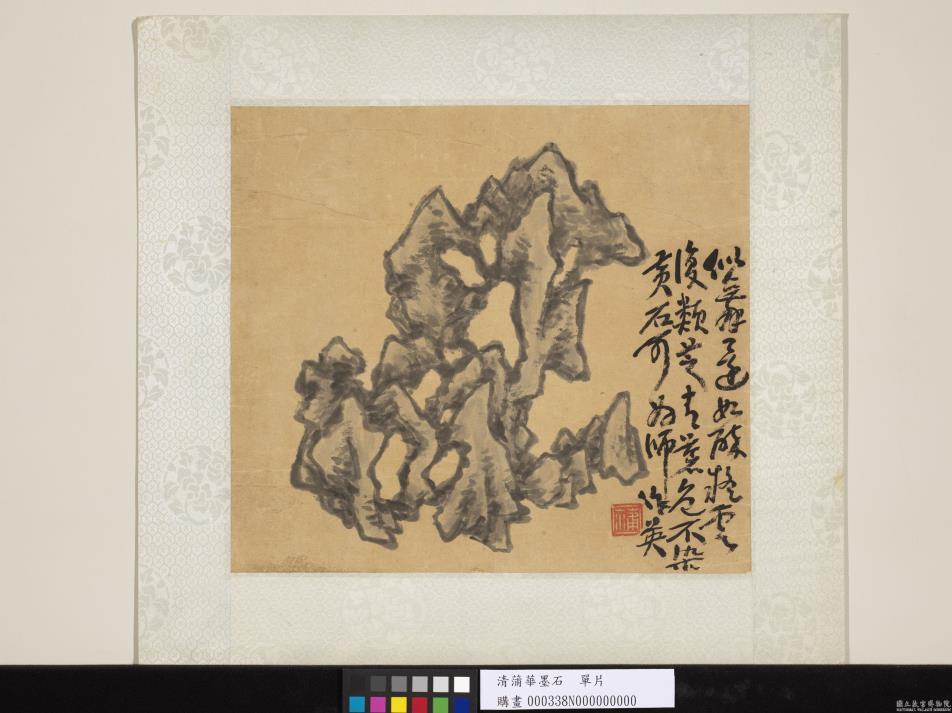 似舞還如醉癡雲
復類芝古蒼色不染
黃石可為師 作英
清蒲華墨石 單片
購畫 000338N000000000
國立故宮博物院
NATIONAL PALACE MUSEUM